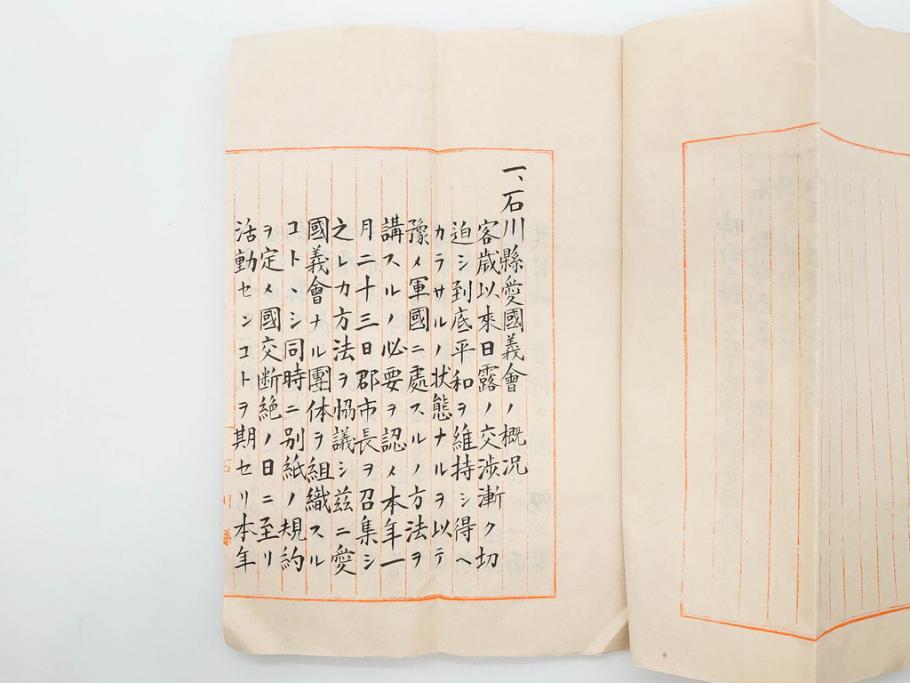 一、石川縣愛國義會ノ概況
客歳以來日露ノ交渉漸ク切
迫シ到底平和ヲ維持シ得ヘ
カラサルノ状態ナルヲ以テ
豫メ軍國ニ處スルノ方法ヲ
講スルノ必要ヲ認メ本年一
月二十三日郡市長ヲ召集シ
之レカ方法ヲ協議シ茲ニ愛
國義會ナル團体ヲ組織スル
コトヽシ同時ニ別紙ノ規約
ヲ定メ國交断絶ノ日ニ至リ
活動センコトヲ期セリ本年
石川縣